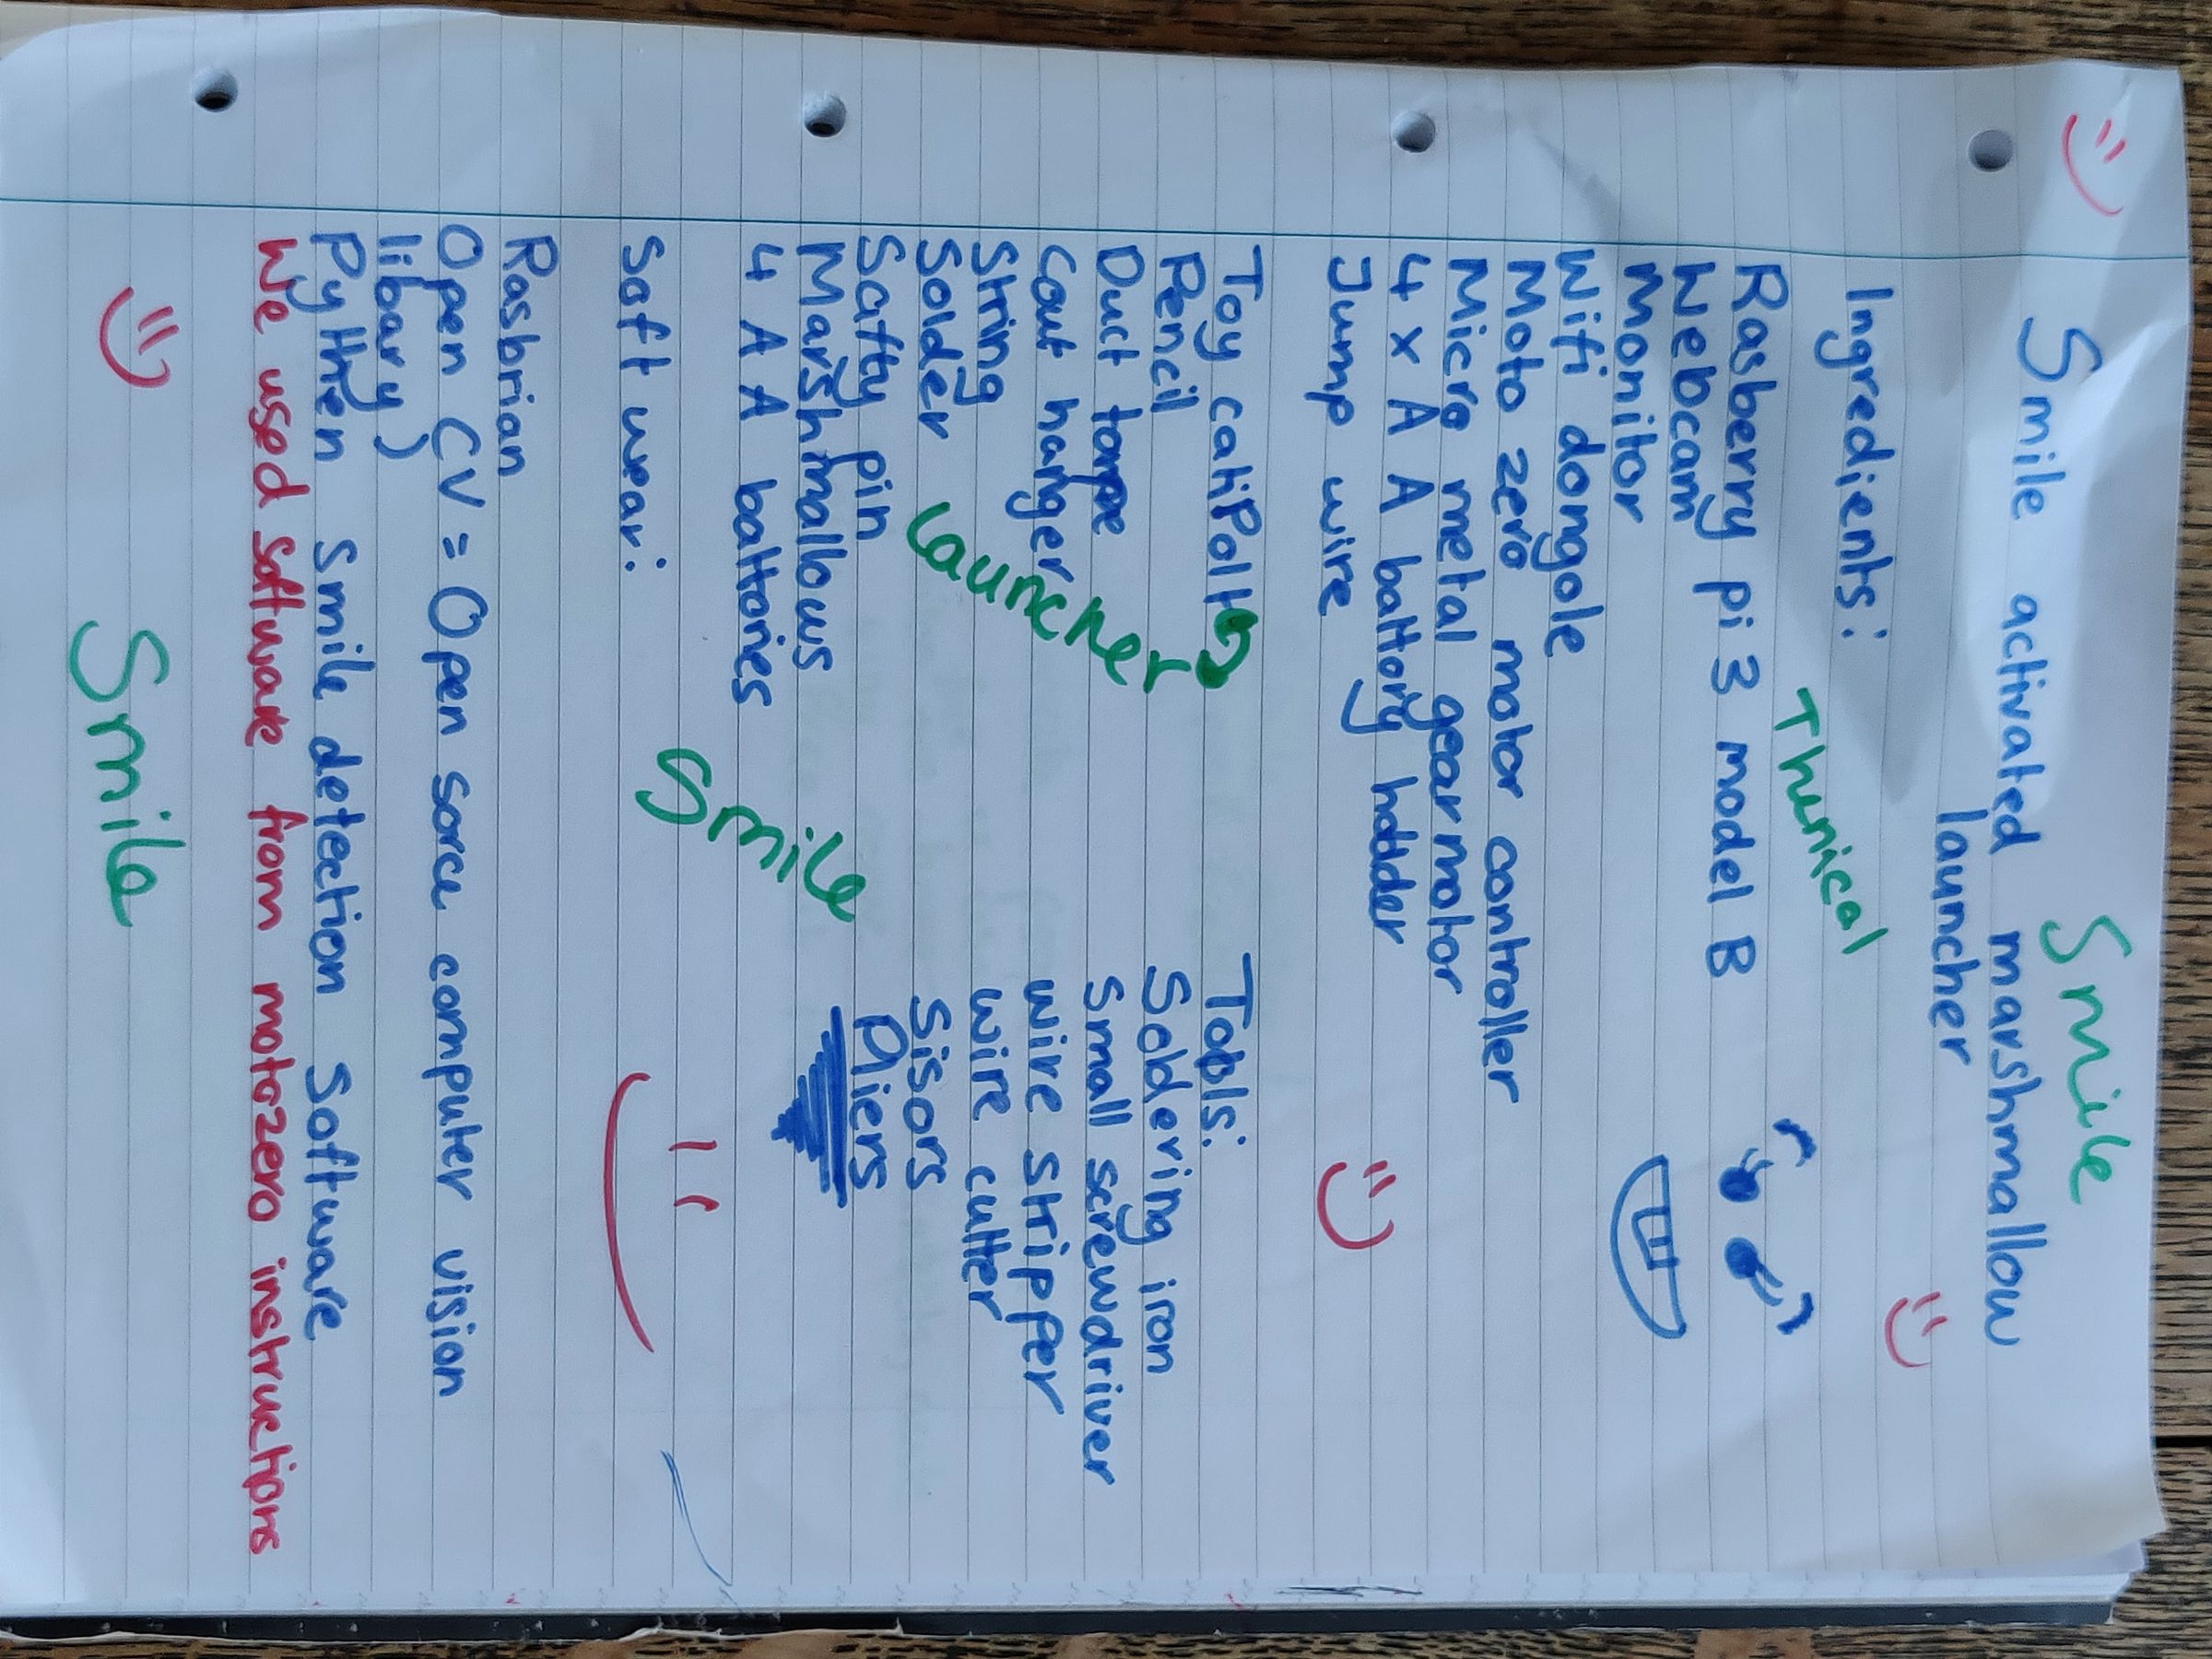 Smile
Smile activated marshmallow
launcher
Ingredients:
Thunical
Rasberry pi 3 model B
Webcam
Monitor
Wifi dongole
Moto zero motor controller
Micro metal gear motor
4 x A A battory hodder
Jump wire
Toy catiPolt
Pencil
Duct tape
Cout hanger
String
Solder
Safty pin
Marshmallows
4 A A battories
Launcher
Tools:
Soldering iron
Small screwdriver
wire stripper
wire cutter
Sisors
Pliers
Smile
Soft wear:
Rasbrian
Open CV = Open sorce computer vision
libary)
Python Smile detection Software
We used software from motozero instructions
Smile